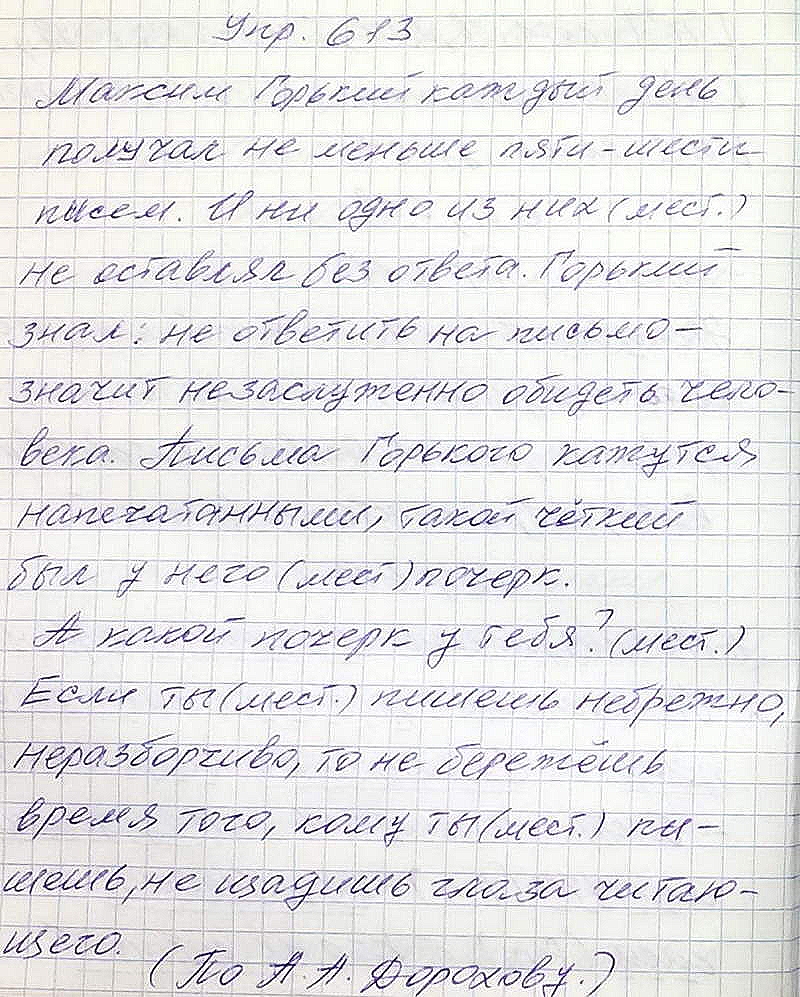 Упр. 613
Максим Горький каждый день
получал не меньше пяти-шести
писем. И ни одно из них (мест.)
не оставлял без ответа. Горький
знал: не ответить на письмо –
значит незаслуженно обидеть чело-
века. Письма Горького кажутся
напечатанными, такой чёткий
был у него (мест) почерк.
А какой почерк у тебя? (мест.)
Если ты (мест.) пишешь небрежно,
неразборчиво, то не бережёшь
время того, кому ты (мест.) пи-
шешь, не щадишь глаза читаю-
щего.
(По А. А. Дорохову.)